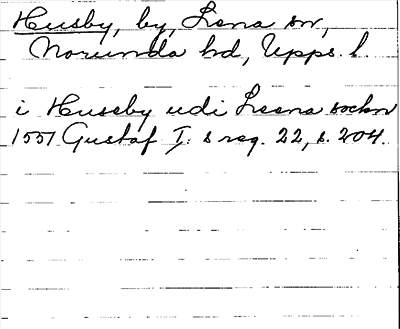 Husby, by, Lena sn,
Norunda hd, Upps. l.
i Huseby udi Leena sockn
1551 Gustaf I:s reg. 22, s. 204.